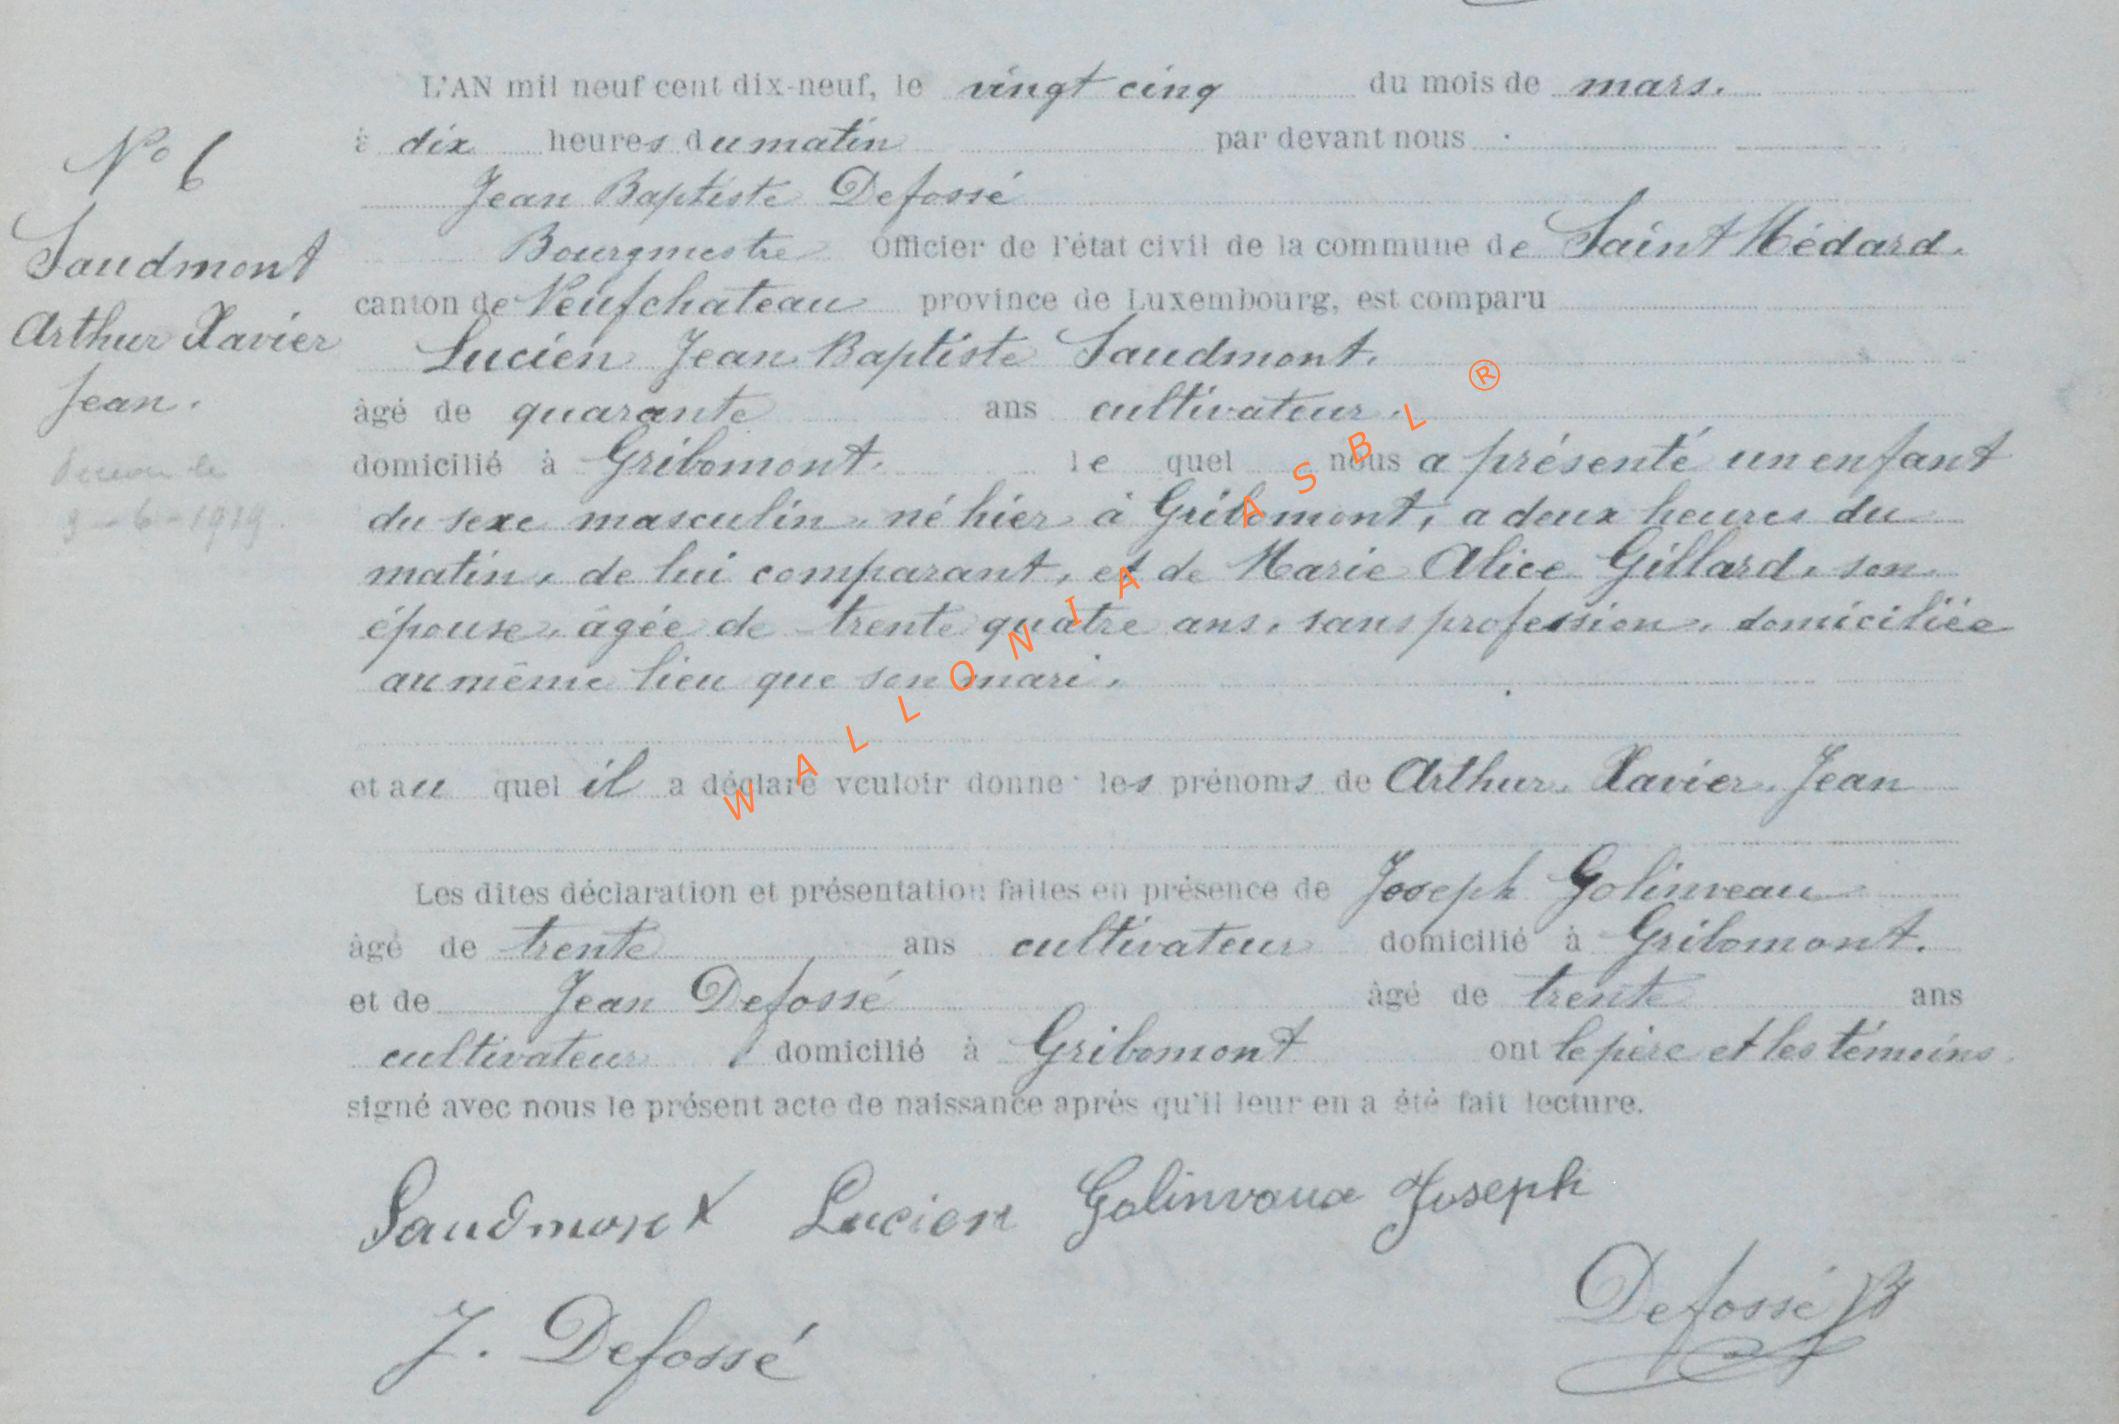 L'AN mil neuf cent dix-neuf, le vingt cinq du mois de mars.
à dix heures du matin par devant nous
Jean Baptiste Defossé
Bourgmestre Officier de l'état civil de la commune de Saint Médard.
canton de Neufchateau province de Luxembourg, est comparu
Lucien Jean Baptiste Saudmont.
âgé de quarante ans cultivateur.
domicilié à Gribomont. le quel nous a présenté un enfant
du sexe masculin, né hier à Gribomont, a deux heures du
matin, de lui comparant, et de Marie Alice Gillard, son
épouse, âgée de trente quatre ans, sans profession, domiciliée
au même lieu que son mari.
et au quel il a déclaré vouloir donner les prénoms de Arthur, Xavier, Jean
Les dites déclaration et présentation faites en présence de Joseph Golinveau
âgé de trente ans cultivateur domicilié à Gribomont.
et de Jean Defossé âgé de trente ans
cultivateur domicilié à Gribomont ont le père et les témoins
signé avec nous le présent acte de naissance après qu'il leur en a été fait lecture.
Saudmont Lucien Golinvaux Joseph
J. Defossé Defossé JB
No 6
Saudmont
Arthur Xavier
Jean.
le
9-6-1919.
WALLONIA ASBL ®